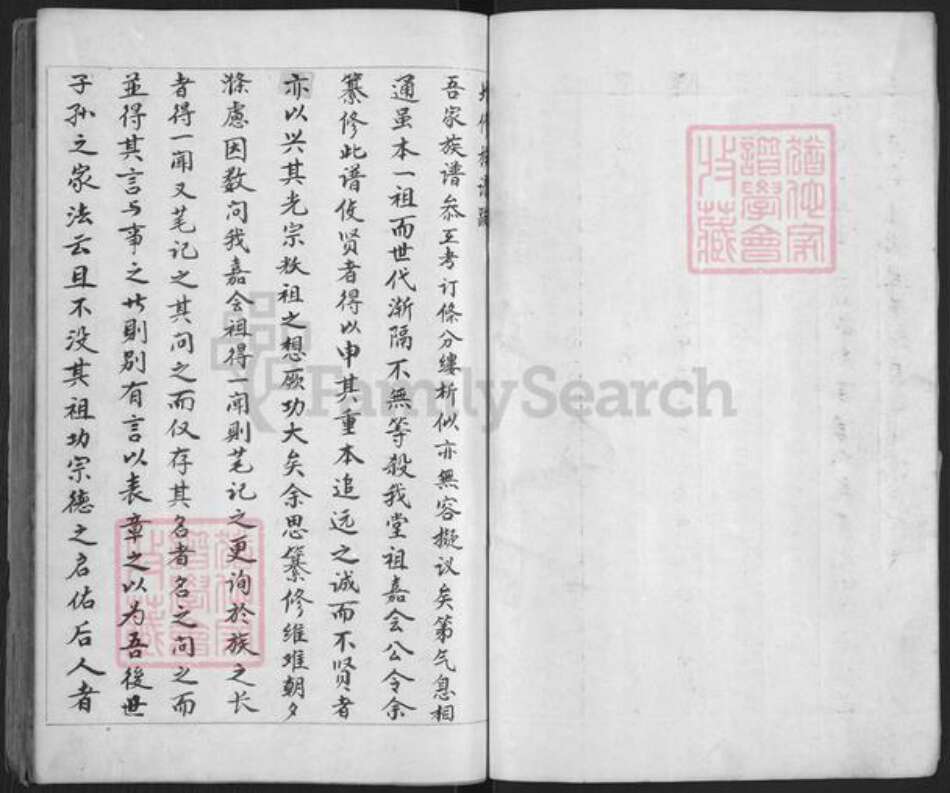 吾家族谱叅互考订條分缕析似亦無容擬议矣第气息相
通虽本一祖而世代渐隔不無等殺我堂祖嘉会公令余
纂修此谱使贤者得以申其重本追远之诚而不贤者
亦以兴其光宗敬祖之想厥功大矣余思纂修维难朝夕
滌慮因数问我嘉会祖得一闻則笔记之更询於族之长
者得一闻又笔记之其问之而仅存其名者名之问之而
並得其言与事之状則别有言以表章之以为吾後世
子孙之家法云且不没其祖功宗德之启佑后人者
FamilySearch
譜學會
收藏